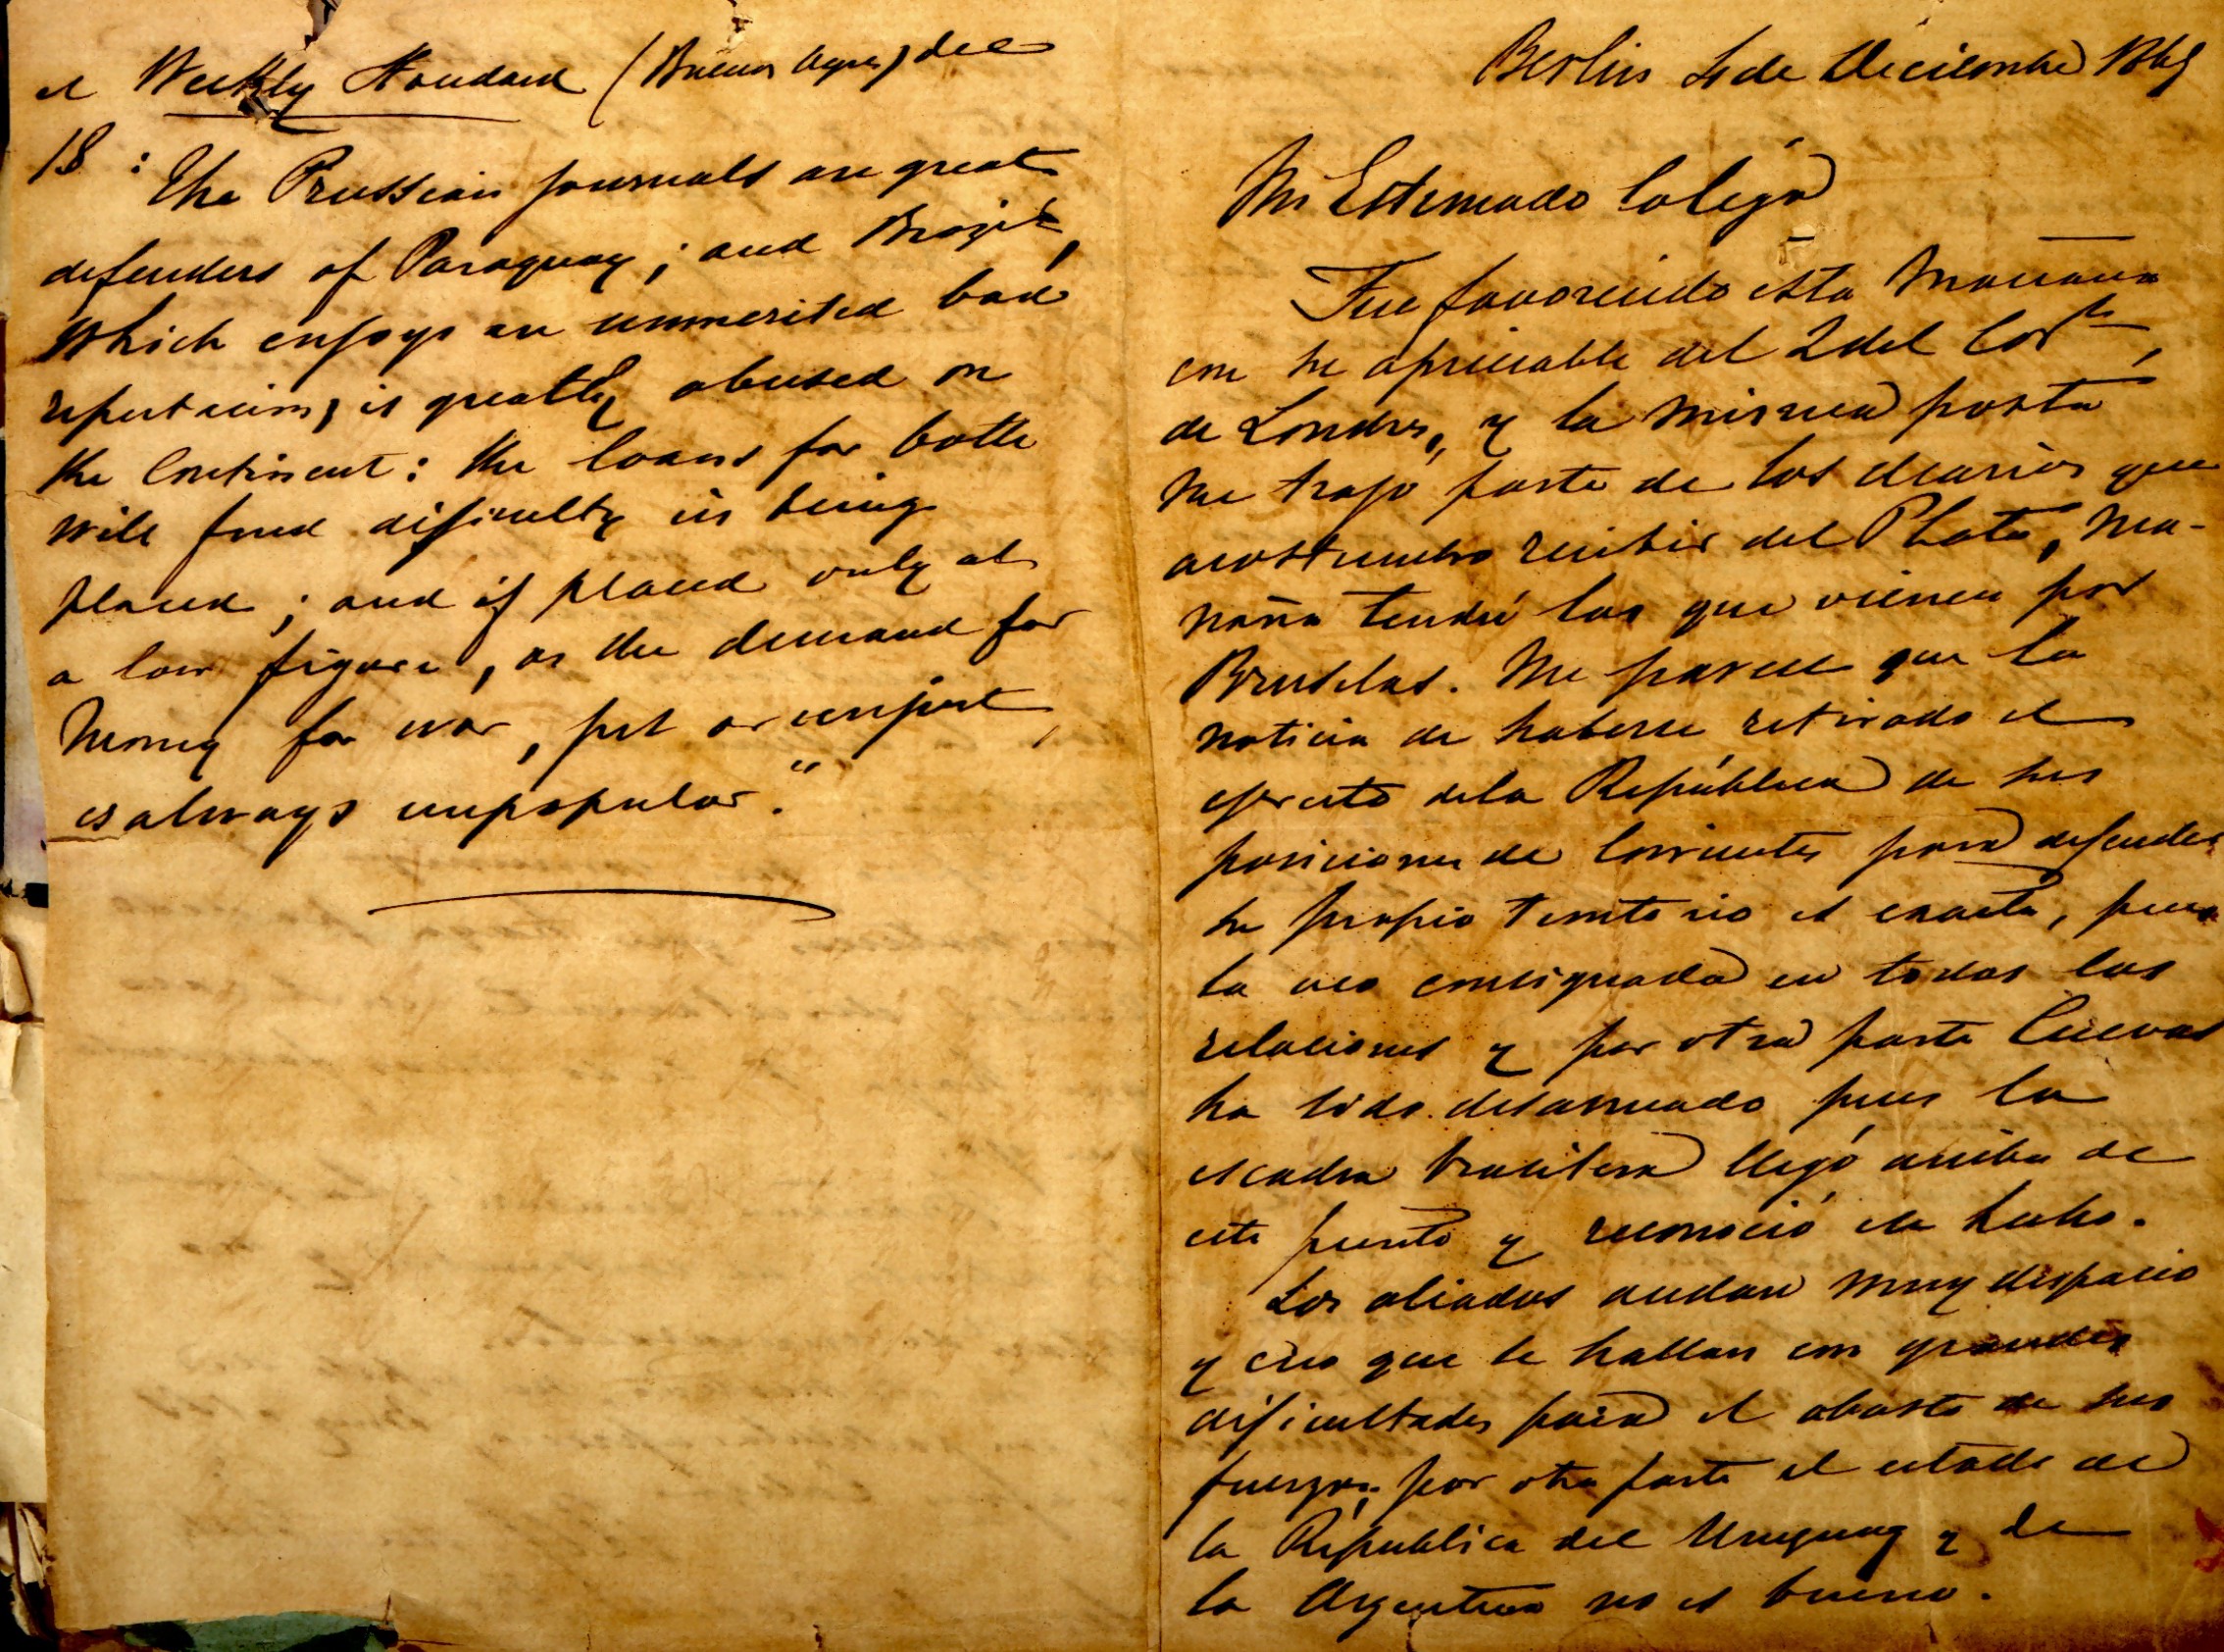 el Weekly Standard (Buenos Ayres) del
18 : The Prussian journals are great
defenders of Paraguay ; and Brazil,
which enjoys an unmerited bad
reputacion, is greatly abused on
the Continent : the loans for both
will find dificulty in being
placed ; and if placed only at
a low figure, as the demand for
money for war, just or unjust,
is always unpopular."
Berlin 4 de Diciembre 1865
Mi Estimado Colega
Fue favorecido esta mañana
con su apreciable del 2 del Corte,
de Londres, y la misma posta
me trajo parte de los diarios que
acostumbro recibir del Plata, ma-
ñana tendré los que vienen por
Bruselas. Me parece que la
noticia de haberse retirado el
ejercito de la República de sus
posiciones de Corrientes para defender
su propio territorio es exacta, pues
la veo consignada en todas las
relaciones y por otra parte Cuevas
ha sido desarmado pues la
escadra brasilera llegó arriba de
este punto y reconoció el hecho.
Los aliados andan muy despacio
y creo que se hallan con grandes
dificultades para el abasto de sus
fuerzas, por otra parte el estado de
la República del Uruguay y de
la Argentina no es bueno.